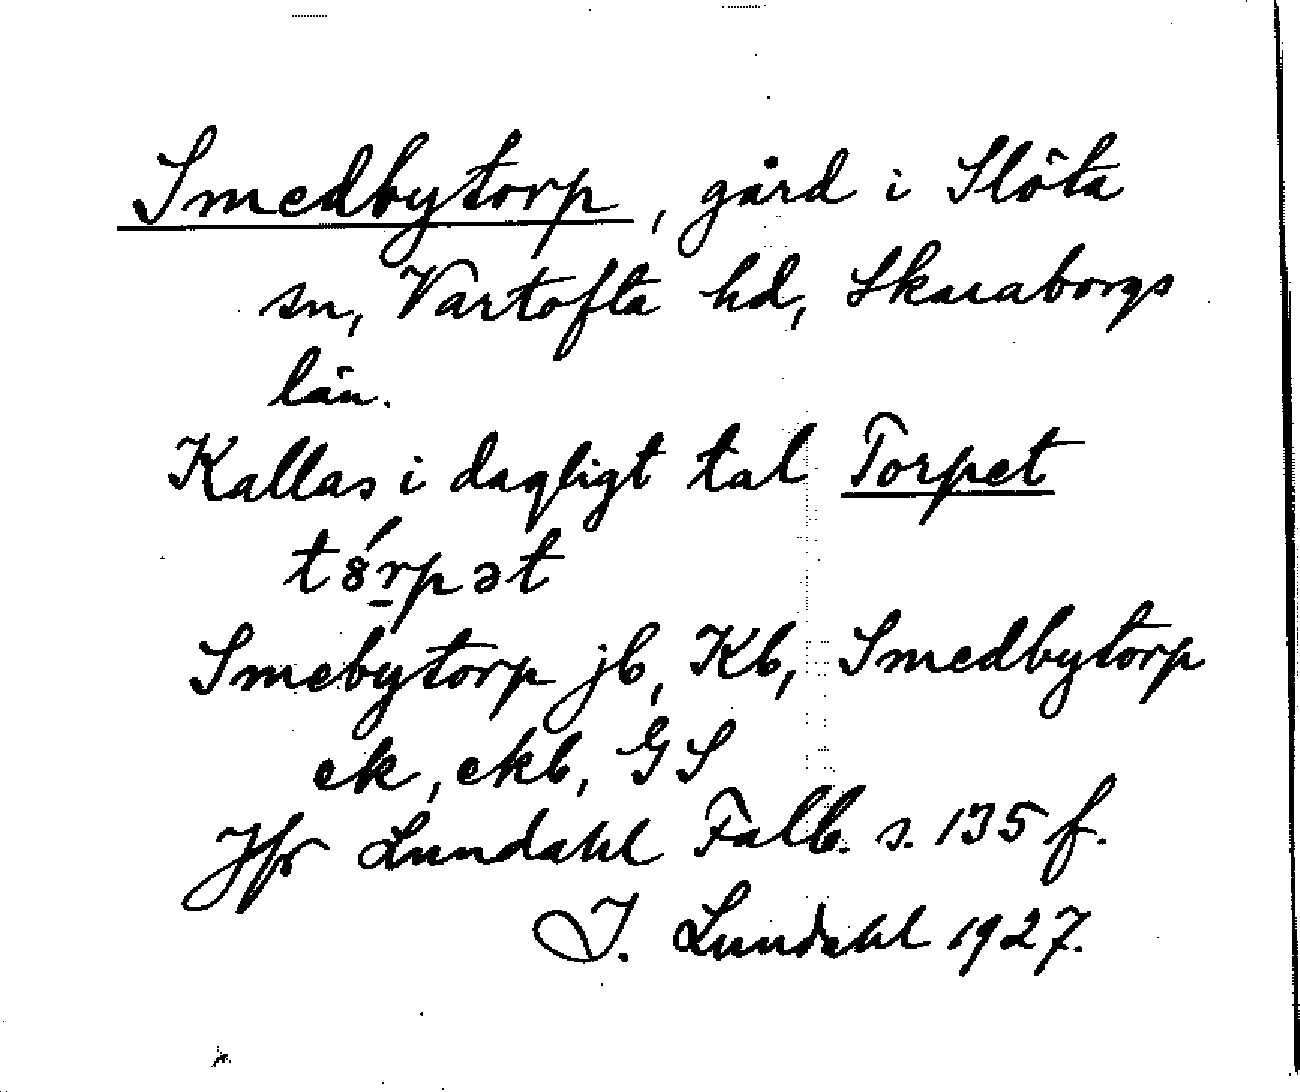 Smedbytorp, gård i Slöta
sn, Vartofta hd, Skaraborgs
län.
Kallas i dagligt tal Torpet
tȣ́r̠pət
Smebytorp jb, Kb, Smedbytorp
ek, ekb, GS
Jfr Lundahl Falb. s. 135 f.
I. Lundahl 1927.